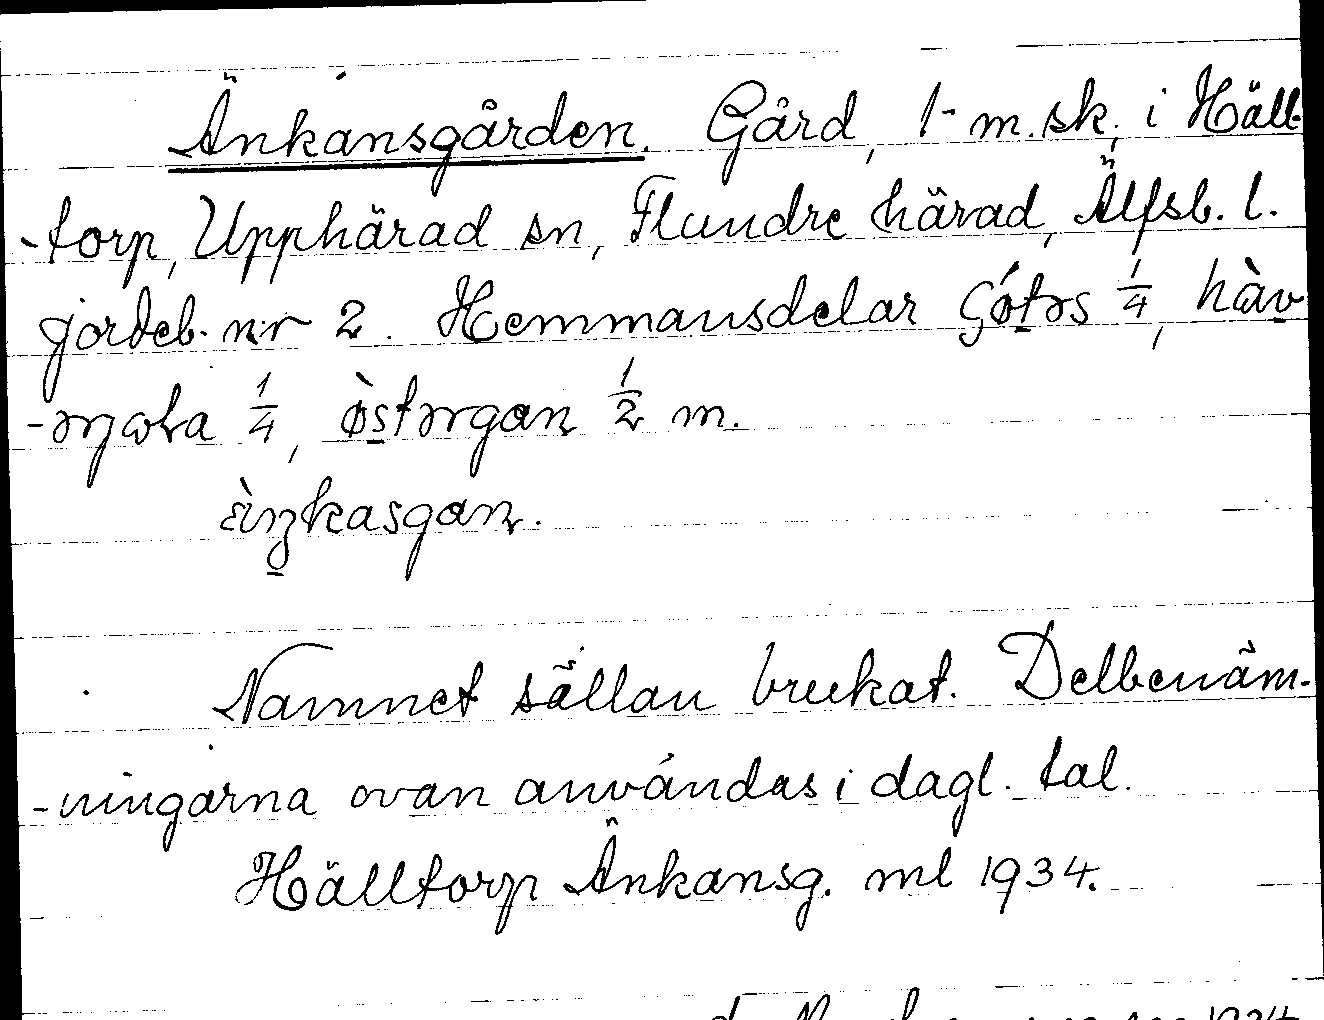 Änkansgården. Gård, 1 m.sk. i Häll-
-torp, Upphärad sn, Flundre härad, Älfsb. l.
jordeb. nr 2. Hemmansdelar Götəs 1/4, hàv
-əŋata 1/4, östərgaɳ 1/2 m.
äŋkasgaɳ.
Namnet sällan brukat. Delbenäm-
-ningarna ovan användas i dagl. tal.
Hälltorp Änkansg. ml 1934.
1934